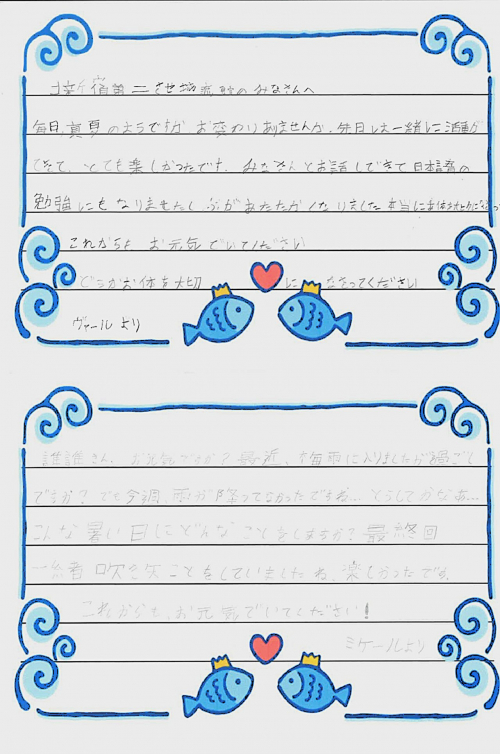 北新宿第二さぎ増病院のみなさんへ
毎日、真夏のようですが お変わりありませんか、先日は一緒に活動が
できて、とても楽しかったです。みなさんとお話しできて日本語の
勉強にもなりましたし 心があたたかくなりました 本当に
これからも、お元気でいてください
どうかお体を大切になさってください
ヴァールより
誰誰さん、お元気ですか？最近、梅雨に入りましたが過ごし
ですか？でも今週、雨が降ってなかったですね... どうしてかなあ...
こんな暑い日にどんなことをしますか？最終回
一緒 ことをしていましたね、楽しかったです。
これからも、お元気でいてください！
ミケールより